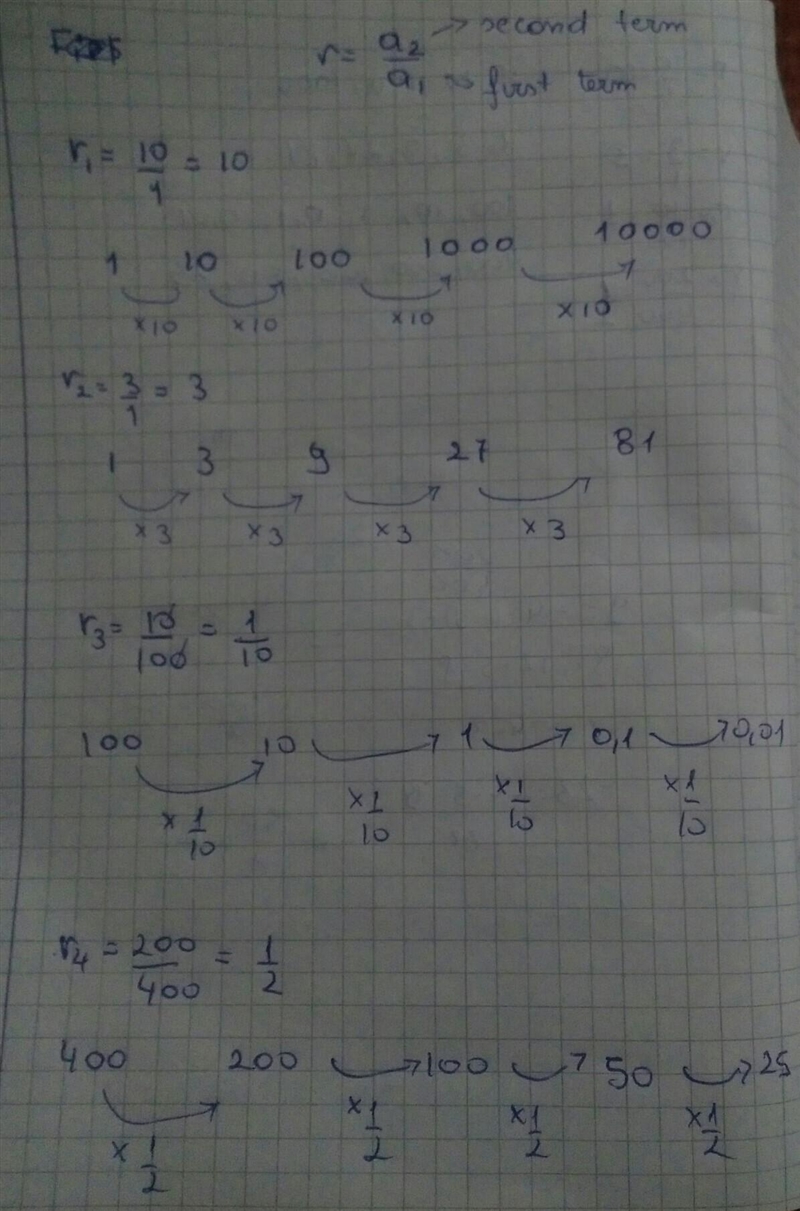 r = a₂/a₁ → second term
→ first term
r₁ = 10/1 = 10
1 10 100 1000 10000
×10 ×10 ×10 ×10
r₂ = 3/1 = 3
1 3 9 27 81
×3 ×3 ×3 ×3
r₃ = 10/100 = 1/10
100 10 1 0,1 0,01
×1/10 ×1/10 ×1/10 ×1/10
r₄ = 200/400 = 1/2
400 200 100 50 25
×1/2 ×1/2 ×1/2 ×1/2